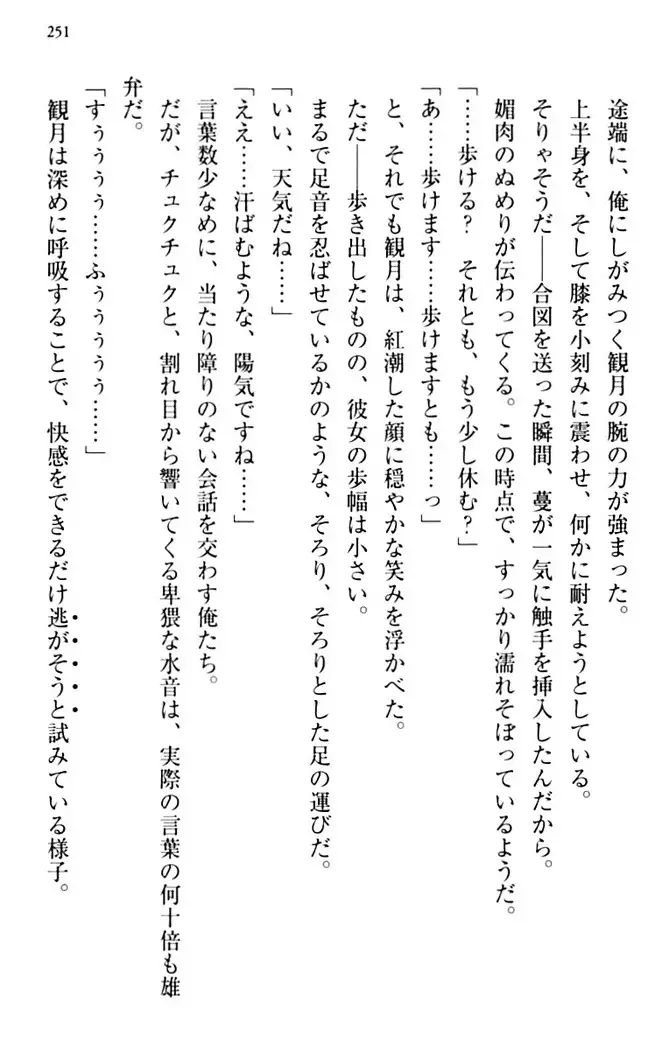 251
途端に、俺にしがみつく観月の腕の力が強まった。
上半身を、そして膝を小刻みに震わせ、何かに耐えようとしている。
そりゃそうだ――合図を送った瞬間、蔓が一気に触手を挿入したんだから。
媚肉のぬめりが伝わってくる。この時点で、すっかり濡れそぼっているようだ。
「……歩ける?　それとも、もう少し休む?」
「あ……歩けます……歩けますとも……っ」
と、それでも観月は、紅潮した顔に穏やかな笑みを浮かべた。
ただ――歩き出したものの、彼女の歩幅は小さい。
まるで足音を忍ばせているかのような、そろり、そろりとした足の運びだ。
「いい、天気だね……」
「ええ……汗ばむような、陽気ですね……」
言葉数少なめに、当たり障りのない会話を交わす俺たち。
だが、チュクチュクと、割れ目から響いてくる卑猥な水音は、実際の言葉の何十倍も雄
弁だ。
「すぅぅぅぅ……ふぅぅぅぅぅ……」
観月は深めに呼吸することで、快感をできるだけ逃がそうと試みている様子。